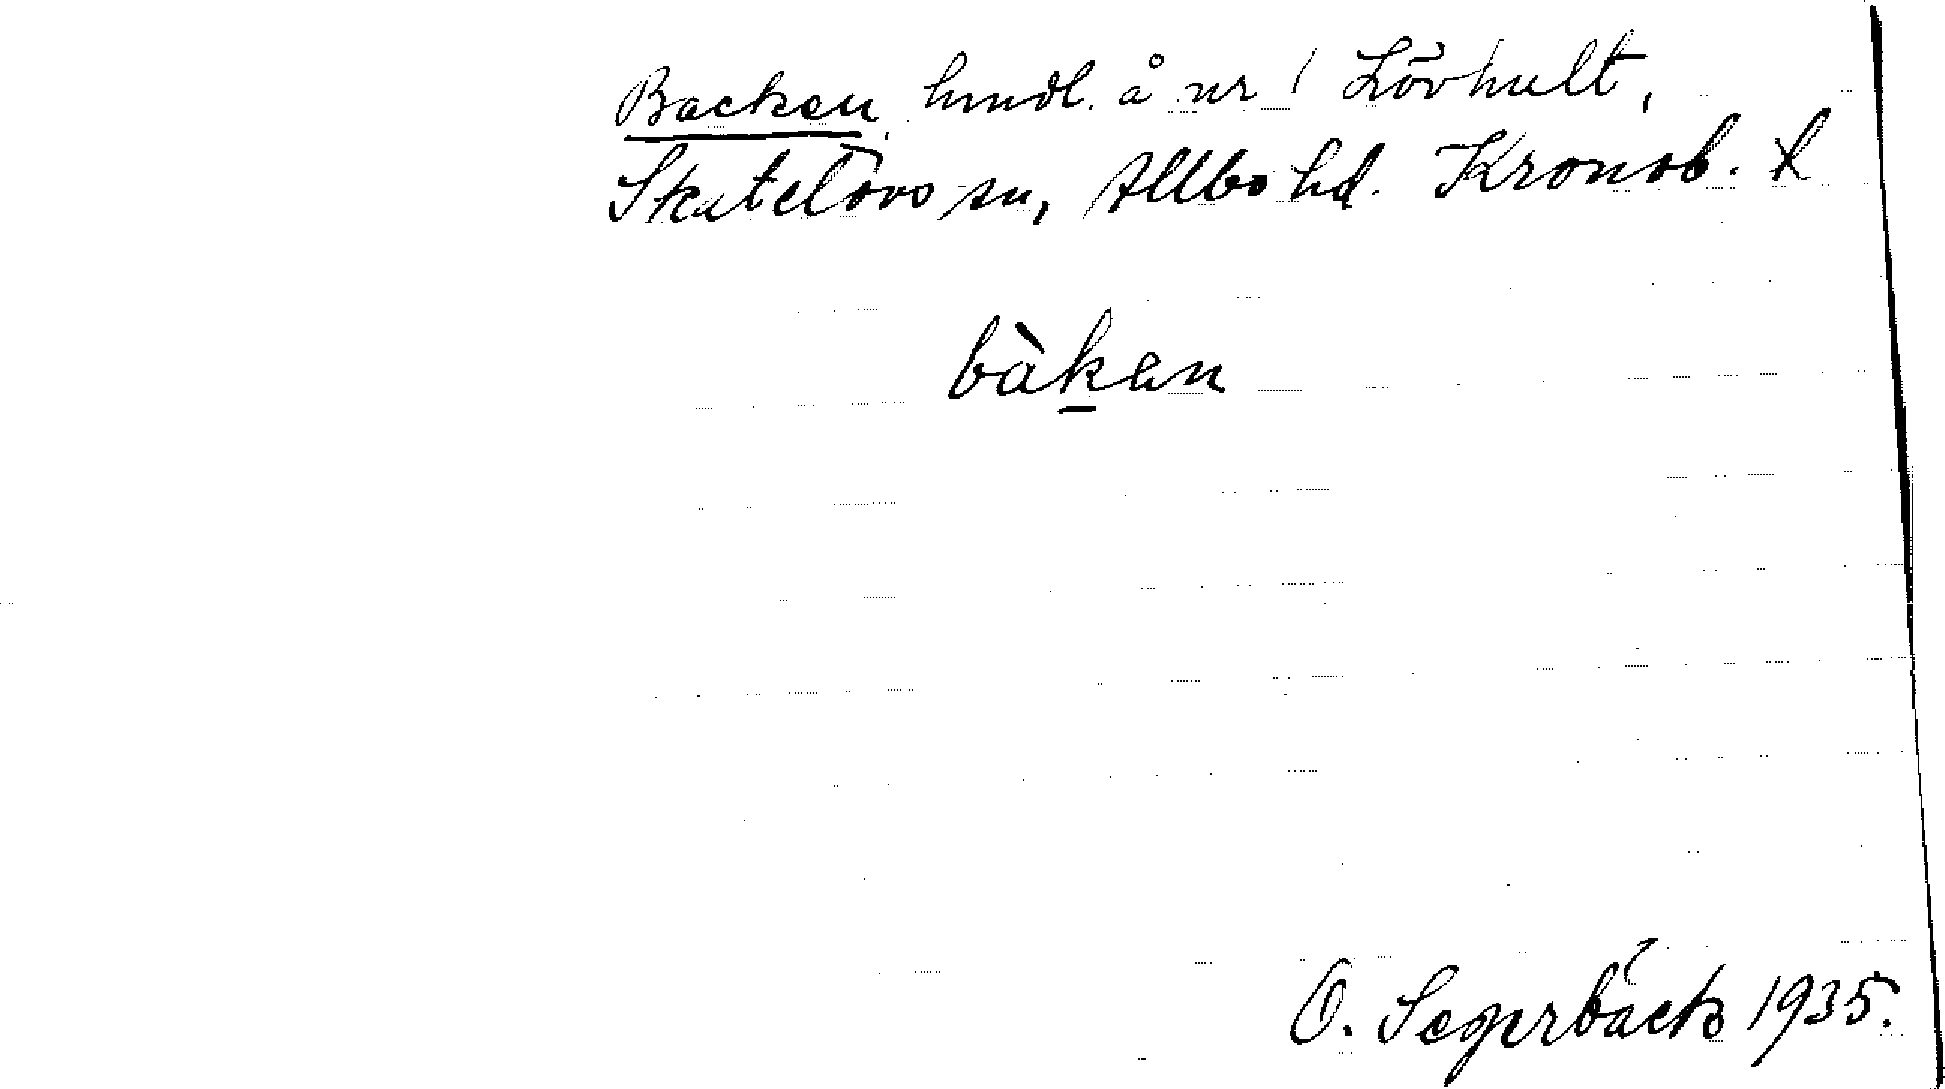 Backen, hmdl. å nr 1 Lövhult,
Skatelövs sn, Allbo hd. Kronob. L
bàkan
O. Segerbäck 1935.